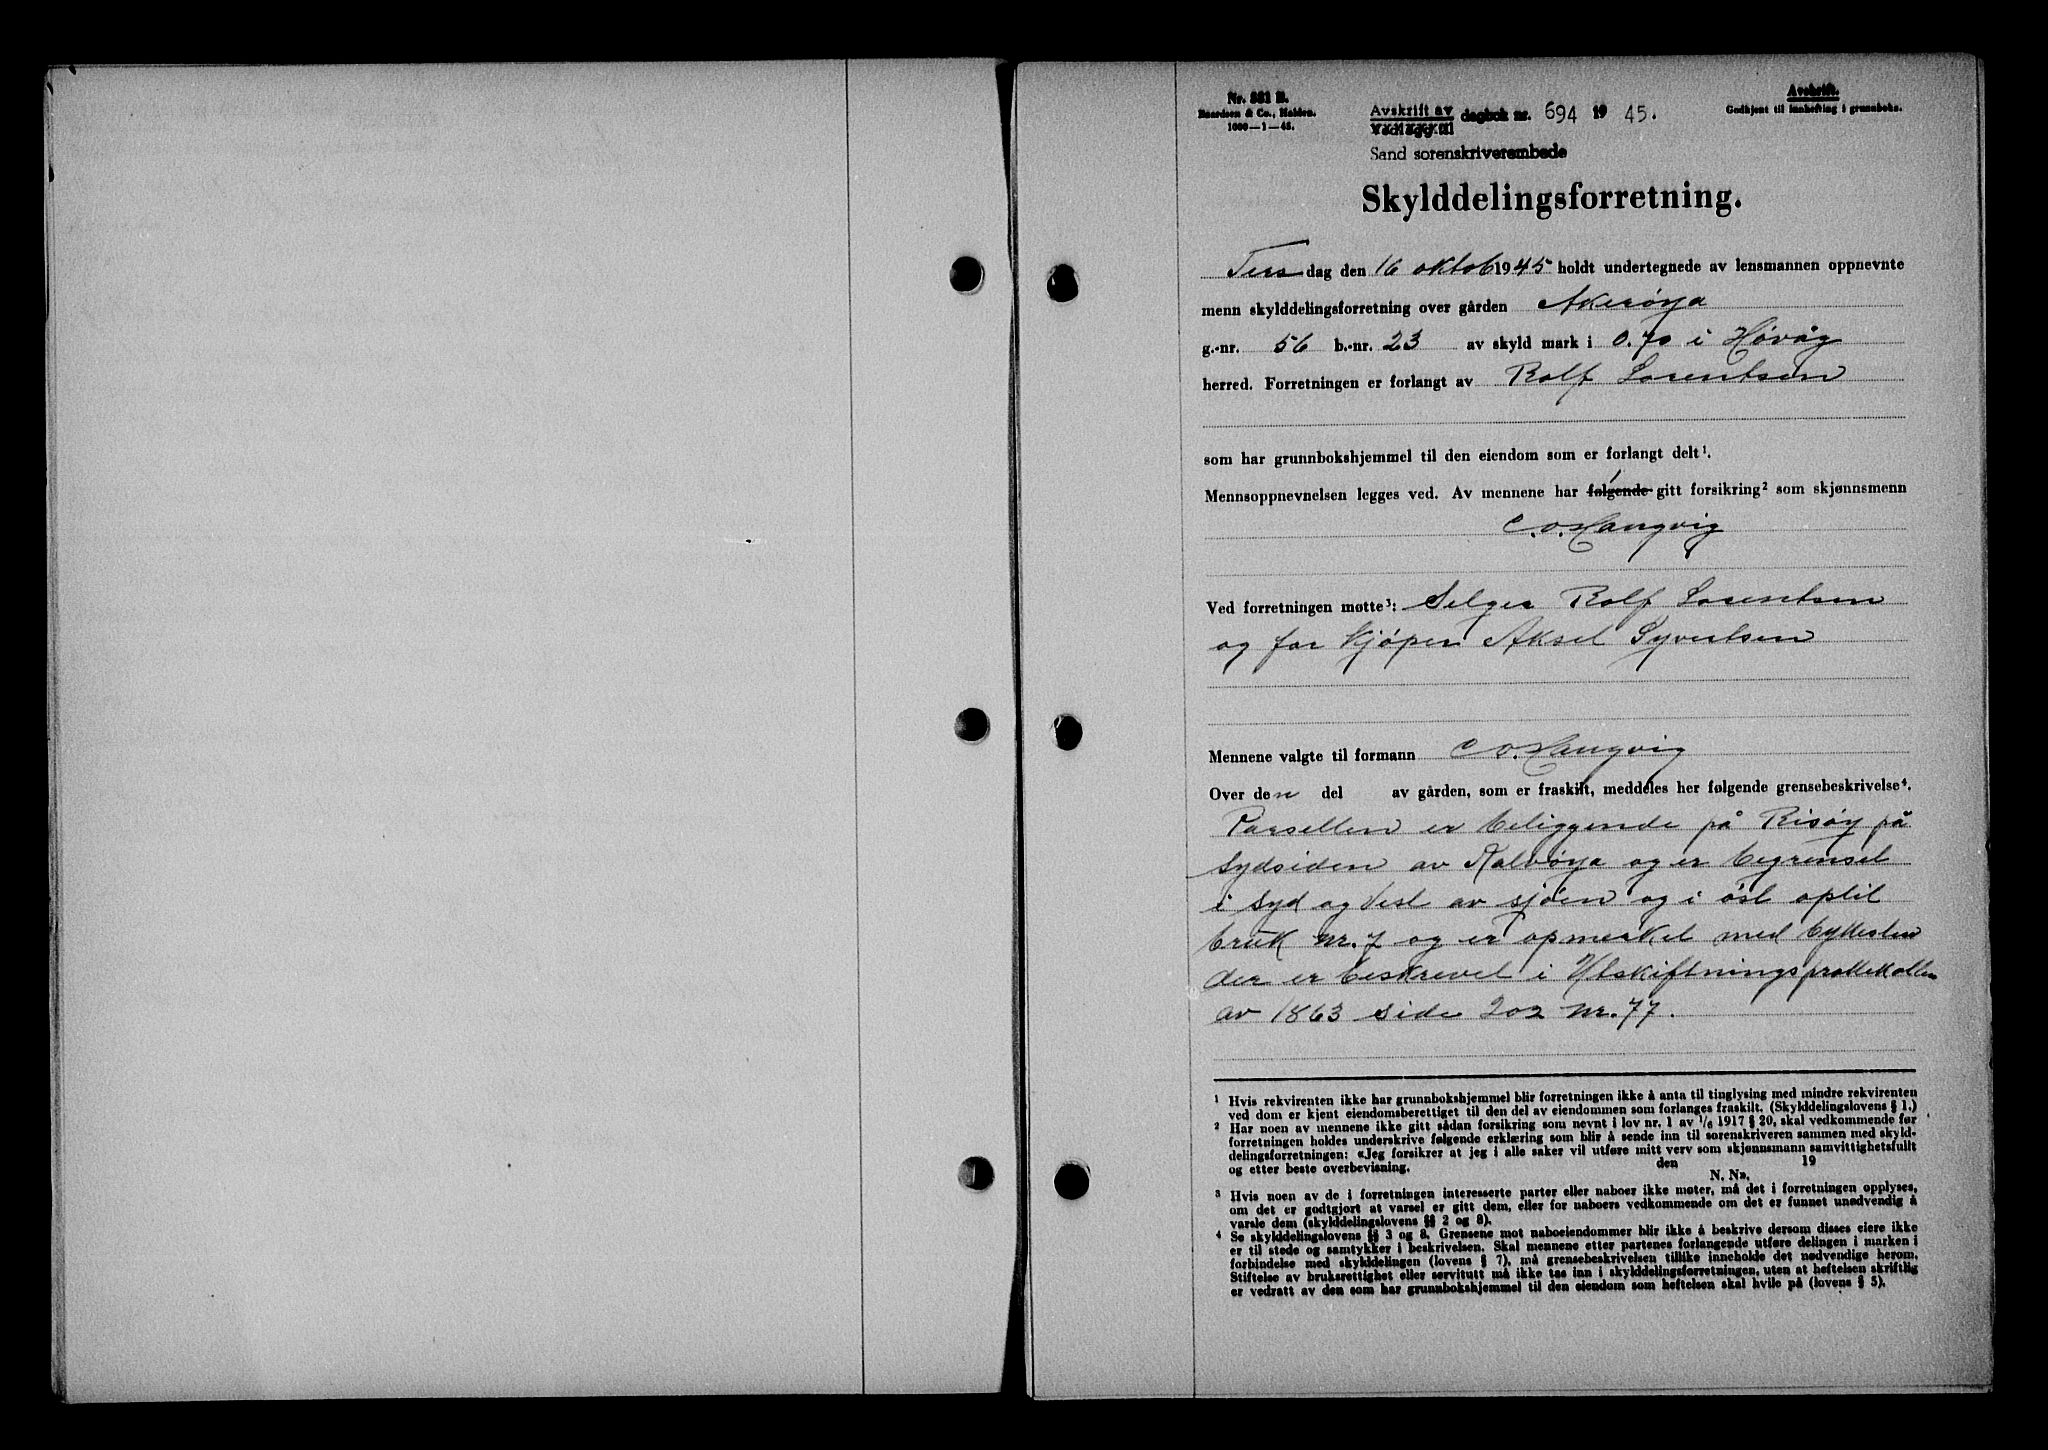 Nr. 881 B.
Baardsen & Co., Halden.
1000—1—43.
Avskrift av
Vedlegg til dagbok nr. 694 19 45.
Sand sorenskriverembede
Avskrift.
Godkjent til innhefting i grunnboka.
Skylddelingsforretning.
Tirsdag den 16 oktob 1945 holdt undertegnede av lensmannen oppnevnte
menn skylddelingsforretning over gården Akerøya
g.-nr. 56 b.-nr. 23 av skyld mark i 0.70 i Høvåg
herred. Forretningen er forlangt av Rolf Lorentsen
som har grunnbokshjemmel til den eiendom som er forlangt delt¹.
Mennsoppnevnelsen legges ved. Av mennene har følgende 1 gitt forsikring² som skjønnsmenn
C. O. Hangvig
Ved forretningen møtte³: Selger Rolf Lorentsen
og for Kjøper Aksel Syvertsen
Mennene valgte til formann C O. Hangvig
Over den del av gården, som er fraskilt, meddeles her følgende grensebeskrivelse⁴.
Parsellen er beliggende på Risøy på
sydsiden av Kalvøya og er begrenset
i syd og Vest av sjøen og i øst optil
bruk nr. 7 og er opmerket med byttesten
der er beskrevet i Utskiftningsprottekollen
av 1863 side 202 nr. 77.
¹ Hvis rekvirenten ikke har grunnbokshjemmel blir forretningen ikke å anta til tinglysing med mindre rekvirenten
ved dom er kjent eiendomsberettiget til den del av eiendommen som forlanges fraskilt. (Skylddelingslovens § 1.)
² Har noen av mennene ikke gitt sådan forsikring som nevnt i lov nr. 1 av 1/6 1917 § 20, skal vedkommende før
forretningen holdes underskrive følgende erklæring som blir å sende inn til sorenskriveren sammen med skyld-
delingsforretningen: «Jeg forsikrer at jeg i alle saker vil utføre mitt verv som skjønnsmann samvittighetsfullt
og etter beste overbevisning. den 19
N. N».
³ Hvis noen av de i forretningen interesserte parter eller naboer ikke møter, må det i forretningen opplyses,
om det er godtgjort at varsel er gitt dem, eller for naboers vedkommende om det er funnet unødvendig å
varsle dem (skylddelingslovens §§ 2 og 8).
⁴ Se skylddelingslovens §§ 3 og 8. Grensene mot naboeiendommer blir ikke å beskrive dersom disses eiere ikke
er til stede og samtykker i beskrivelsen. Skal mennene etter partenes forlangende utføre delingen i marken i
forbindelse med skylddelingen (lovens § 7), må grensebeskrivelsen tillike inneholde det nødvendige herom.
Stiftelse av bruksrettighet eller servitutt må ikke tas inn i skylddelingsforretningen, uten at heftelsen skriftlig
er vedratt av den som har grunnbokshjemmel til den eiendom som heftelsen skal hvile på (lovens § 5).